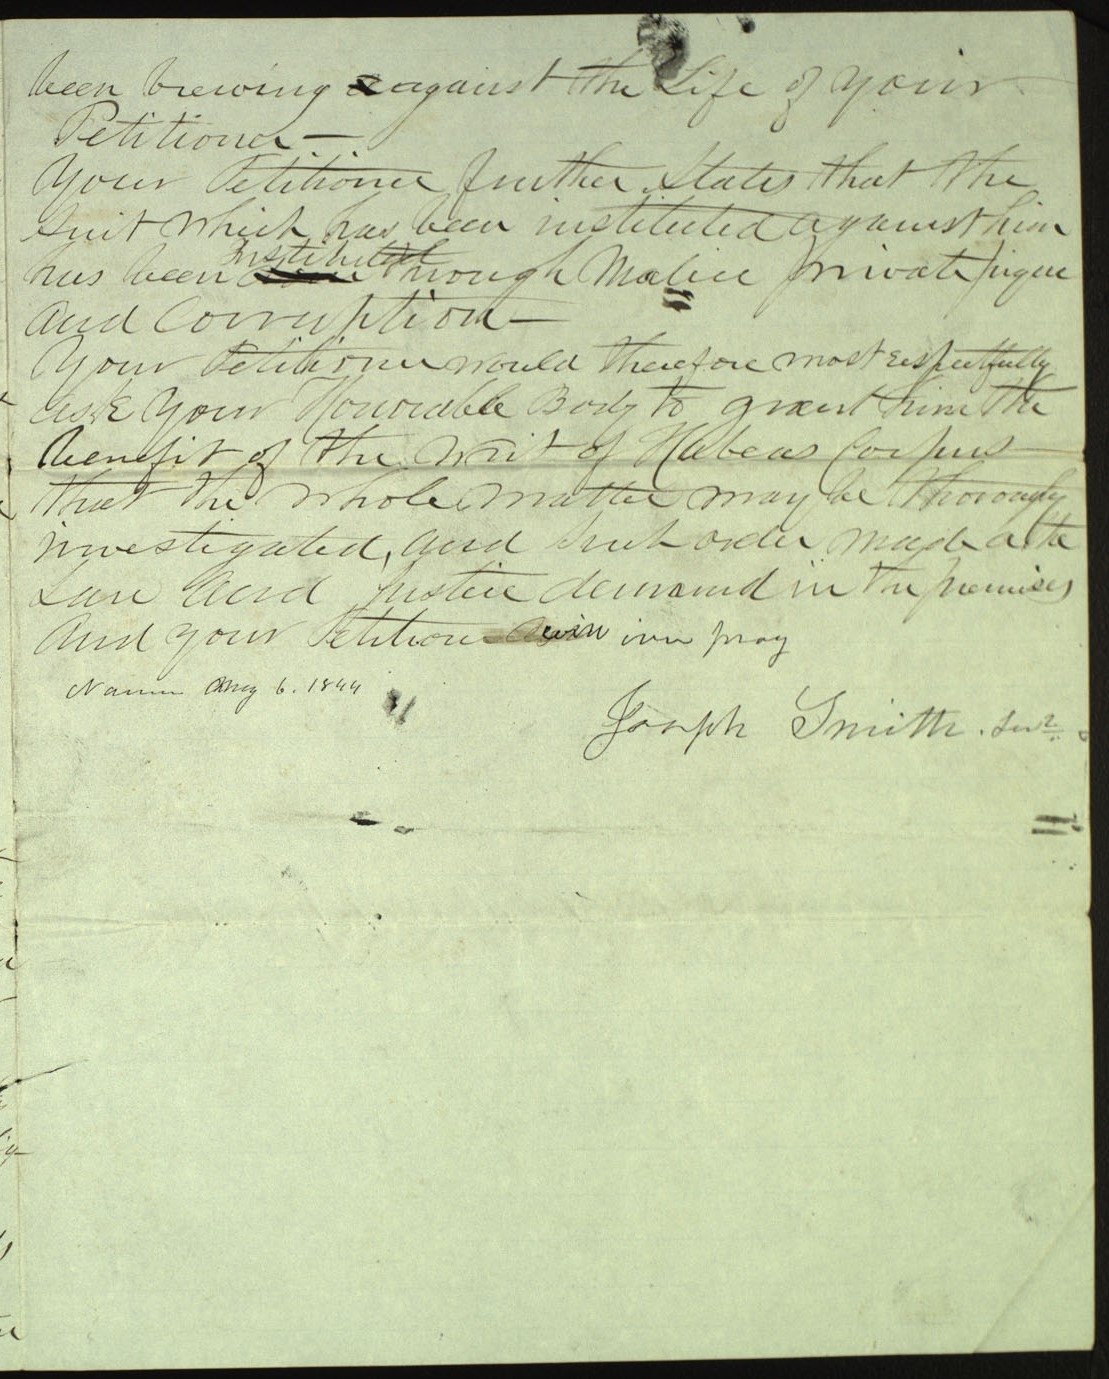 been brewing against the Life of your
Petitioner—
Your Petitioner further States that the
Suit which has been instituted against him
has been Instituted through Malice private pique
and Corruption—
Your Petitioner would therefore most respectfully
ask your Honorable Body to grant him the
benefit of the writ of Habeas Corpus—
that the whole matter may be thoroughly
investigated, and such order made as the
Law and Justice demand in the premises
and your Petitioner will ever pray
Nauvoo May 6. 1844
Joseph Smith. Senr.